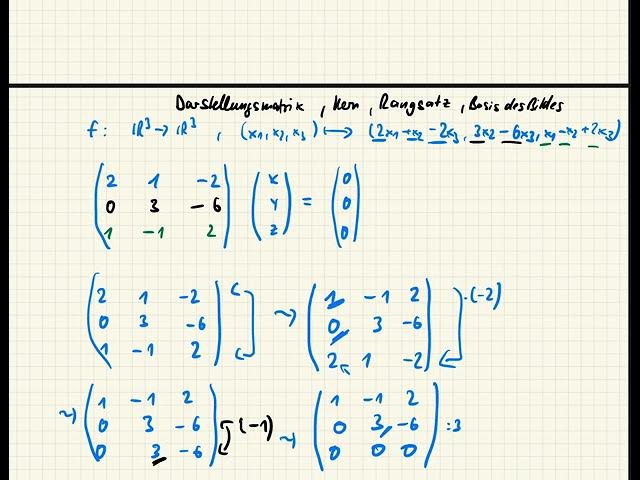 Darstellungsmatrik, Kern, Rangsatz, Basis des Bildes
f: ℝ³ → ℝ³, (x₁, x₂, x₃) ↦ (2x₁+x₂-2x₃, 3x₂-6x₃, x₁-x₂+2x₃)
2 1 -2 x 0
0 3 -6 y = 0
1 -1 2 z 0
2 1 -2 ⇝ 1 -1 2 ·(-2)
0 3 -6 0 3 -6
1 -1 2 2 1 -2
⇝ 1 -1 2 1 -1 2
0 3 -6 (-1) ⇝ 0 3 -6 :3
0 3 -6 0 0 0